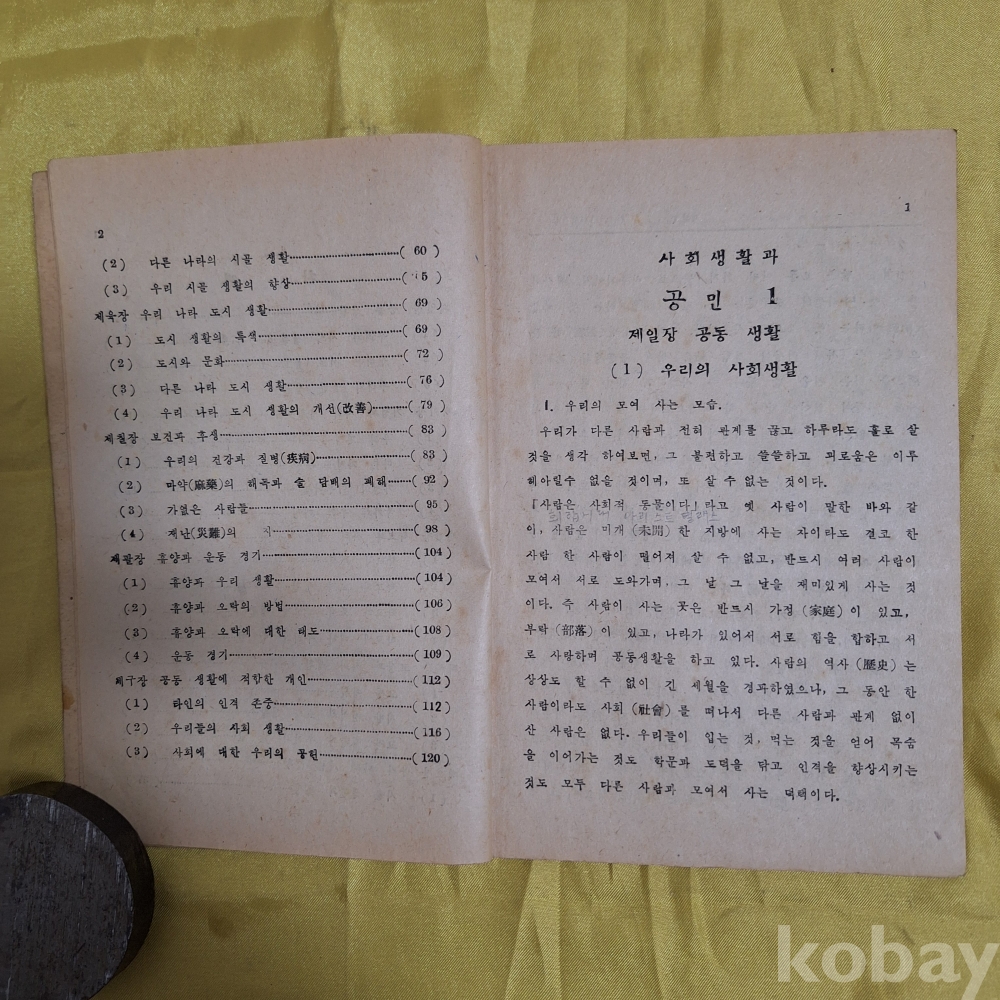 2
(2) 다른 나라의 시골 생활 ( 60 )
(3) 우리 시골 생활의 향상 ( 5 )
제육장 우리 나라 도시 생활 ( 69 )
(1) 도시 생활의 특색 ( 69 )
(2) 도시와 문화 ( 72 )
(3) 다른 나라 도시 생활 ( 76 )
(4) 우리 나라 도시 생활의 개선(改善) ( 79 )
제칠장 보건과 후생 ( 83 )
(1) 우리의 건강과 질병(疾病) ( 83 )
(2) 마약(麻藥)의 해독과 술 담배의 폐해 ( 92 )
(3) 가없은 사람들 ( 95 )
(4) 재난(災難)의 ( 98 )
제팔장 휴양과 운동 경기 ( 104 )
(1) 휴양과 우리 생활 ( 104 )
(2) 휴양과 오락의 방법 ( 106 )
(3) 휴양과 오락에 대한 태도 ( 108 )
(4) 운동 경기 ( 109 )
제구장 공동 생활에 적합한 개인 ( 112 )
(1) 타인의 인격 존중 ( 112 )
(2) 우리들의 사회 생활 ( 116 )
(3) 사회에 대한 우리의 공헌 ( 120 )
1
사회생활과
공민 1
제일장 공동 생활
(1) 우리의 사회생활
1. 우리의 모여 사는 모습.
우리가 다른 사람과 전혀 관계를 끊고 하루라도 홀로 살
것을 생각 하여보면, 그 불편하고 쓸쓸하고 괴로움은 이루
헤아릴수 없을 것이며, 또 살 수 없는 것이다.
『사람은 사회적 동물이다』라고 옛 사람이 말한 바와 같
아리스토텔레스
이, 사람은 미개 (未開) 한 지방에 사는 자이라도 결코 한
사람 한 사람이 떨어져 살 수 없고, 반드시 여러 사람이
모여서 서로 도와가며, 그 날 그 날을 재미있게 사는 것
이다. 즉 사람이 사는 곳은 반드시 가정 (家庭) 이 있고,
부락 (部落) 이 있고, 나라가 있어서 서로 힘을 합하고 서
로 사랑하며 공동생활을 하고 있다. 사람의 역사 (歷史) 는
상상도 할 수 없이 긴 세월을 경과하였으나, 그 동안 한
사람이라도 사회 (社會) 를 떠나서 다른 사람과 관계 없이
산 사람은 없다. 우리들이 입는 것, 먹는 것을 얻어 목숨
을 이어가는 것도 학문과 도덕을 닦고 인격을 향상시키는
것도 모두 다른 사람과 모여서 사는 덕택이다.
kobay